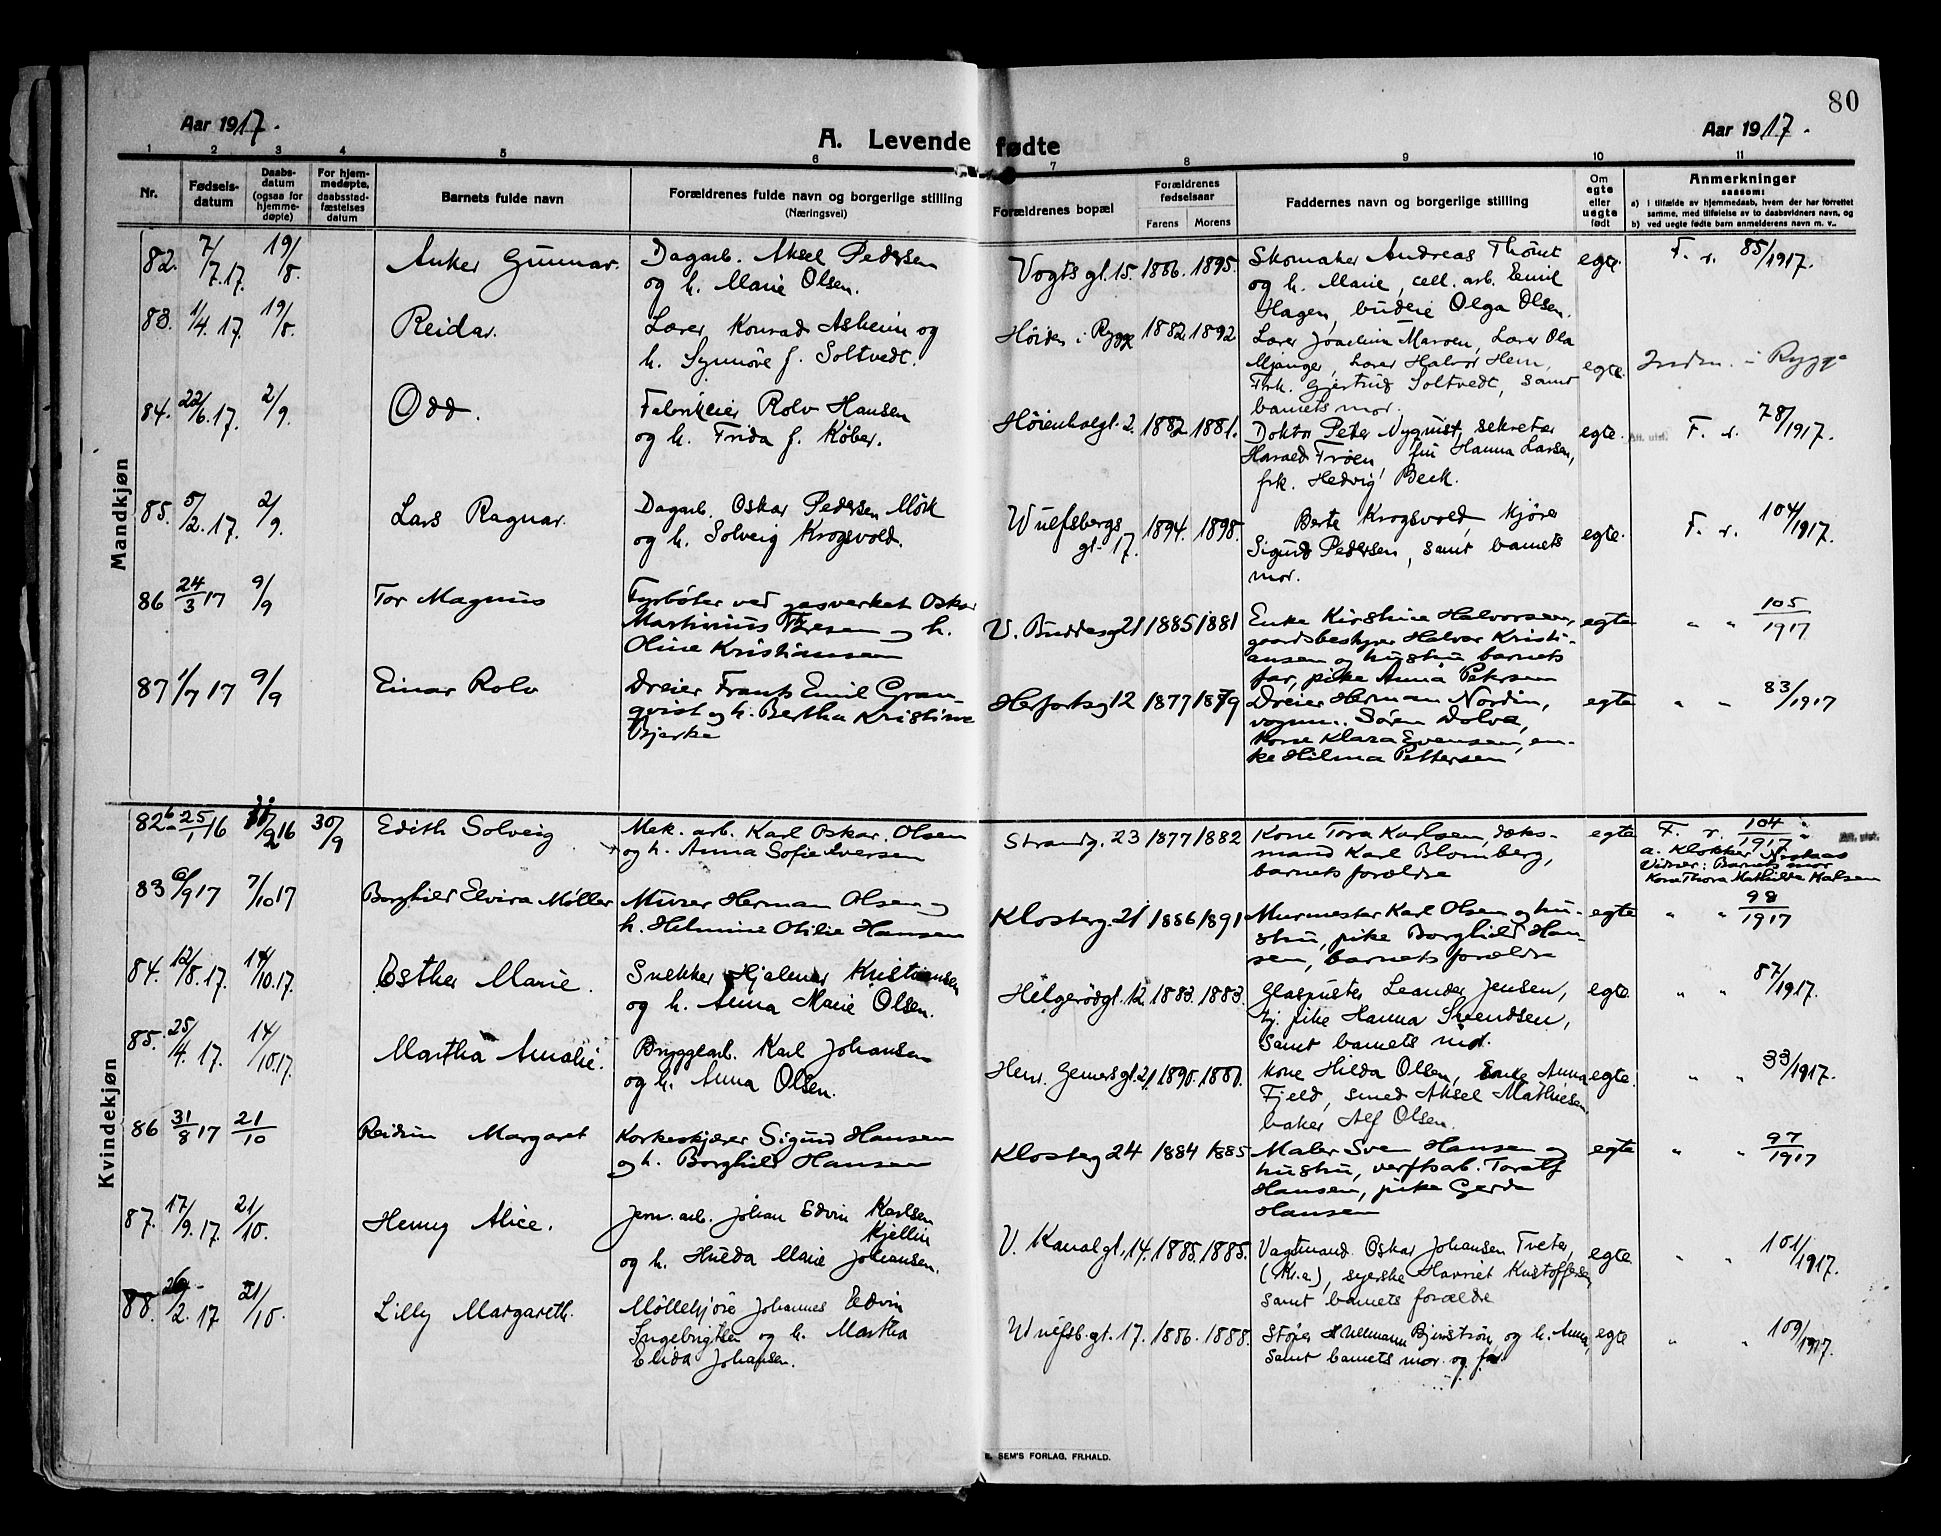 80
Aar 1917.
A. Levende fødte
Aar 1917.
1 2 3 4 5 6 7 8 9 10 11
Nr.
Fødsels-
datum
Daabs-
datum
(ogsaa for
hjemme-
døpte)
For hjem-
medøpte,
daabsstad-
fæstelses
datum
Barnets fulde navn
Forældrenes fulde navn og borgerlige stilling
(Næringsvei)
Forældrenes bopæl
Forældrenes
fødselsaar
Farens Morens
Faddernes navn og borgerlige stilling
Om
egte
eller
uegte
født
Anmerkninger
saasom:
a) i tilfælde av hjemmedaab, hvem der har forrettet
samme, med tilføielse av to daabsvidners navn, og
b) ved uegte fødte barn anmelderens navn m. v..
Mandkjøn
82. 7/7.17. 19/8. Anker Gunnar. Dagarb. Aksel Pedersen
og h. Marie Olsen.
Vogts gt. 15. 1886. 1895. Skomaker Andreas Thønt
og h. Marie, cell. arb. Emil
Hagen, budeie Olga Olsen.
egte. F. r. 85/1917.
83. 1/4. 17. 19/8. Reidar. Lærer Konrad Asheim og
h. Synnøve f. Soltvedt.
Høiden i Rygge 1882 1892 Lærer Joachim Maroen, Lærer Ola
Mjanger, Lærer Halvor Hem,
Frk. Gjertrud Soltvedt, samt
barnets mor.
egte. Indm. i Rygge
84. 22/6.17. 2/9. Odd. Fabrikeier Rolv Hansen
og h. Frida f. Køber.
Høienhalgt. 2. 1882 1881. Doktor Peter Nyquist, sekretær
Harald Trøen, fru Hanna Larsen,
frk. Hedvig Beck.
egte. Att. utst. F. r. 78/1917.
85. 5/2.17. 2/9. Lars Ragnar. Dagarb. Oskar Pedersen Mørk
og h. Solveig Krogsvold.
Wulfsbergs
gt. 17. 1894. 1898. Berte Krogsvold, kjører
Sigurd Pedersen, samt barnets
mor.
egte. F. r. 104/1917.
86 24/3 17 9/9 Tor Magnus Fyrbøter ved gasverket Oskar
Martinius Thresen og h.
Oline Kristiansen
V. Buddesg 21 1885 1881 Enke Kirstine Halvorsen,
gaardsbestyrer Halvor Kristi-
ansen og hustru barnets
far, pike Anna Petersen
egte " " 105/1917
87 1/7 17 9/9 Einar Rolv Dreier Frants Emil Gran-
qvist og h. Bertha Kristine
Bjerke
Herfortsg 12 1877 1879 Dreier Herman Nordin,
vognm. Søren Dolva,
Kone Klara Evensen, en-
ke Hilma Pettersen
egte " " 83/1917
Kvindekjøn
82b 25/1 16 30/9 16 30/9 Edith Solveig Mek. arb. Karl Oskar Olsen
og h. Anna Sofie Iversen
Strandg. 23 1877 1882 Kone Tora Karlsen, dæks-
mand Karl Blomberg,
barnets forældre
egte F. r. 104/1917 Att. utst.
a. Klokker Nystaas
Vidner: Barnets mor
Kone Thora Mathilde Karlsen
83 6/9 17 7/10 17 Borghild Elvira Møller Murer Herman Olsen og
h. Helmine Otilie Hansen
Klosterg. 21 1886 1891 Murmester Karl Olsen og hu-
stru, pike Borghild Han-
sen, barnets forældre
egte " " 98/1917
84. 12/8.17. 14/10.17. Esther Marie. Snekker Hjalmar Kristiansen
og h. Anna Marie Olsen.
Helgerødgt. 12. 1883. 1883. Glaspuster Leander Jensen,
tj. pike Hanna Svendsen,
samt barnets mor.
egte. " " 87/1917.
85. 25/4. 17. 14/10.17. Martha Amalie. Bryggearb. Karl Johansen
og h. Anna Olsen.
Henr. Gernersgt. 21 1890. 1881. Kone Hilda Olsen, Enke Anna
Fjeld, smed Aksel Mathiesen
baker Alf Olsen.
egte. " " 33/1917.
86 31/8 17 21/10 Reidun Margaret Korkeskjærer Sigurd Hansen
og h. Borghild Hansen
Klosterg 24 1884 1885 Maler Sven Hansen og
hustru, verftsarb. Toralf
Hansen, pike Gerda
Hansen
egte " " 97/1917
87. 17/9. 17. 21/10. Henny Alice. Jern. arb. Johan Edvin Karlsen
Kjellin
og h. Hulda Marie Johansen.
V. Kanalgt. 14. 1885. 1885. Vagtmand Oskar Johansen Tveter,
(Kr.a), syerske Harriet Kristoffersen
samt barnets forældre
egte. " " 101/1917.
88. 26/2. 17 21/10. Lilly Margareth. Møllekjører Johannes Edvin
Ingebrigtsen og h. Martha
Elida Johansen.
Wulfsb. gt. 17. 1886. 1888. Støper Bjurstrøm og h. Anna,
samt barnets mor og far
egte " " 109/1917.
E. SEM'S FORLAG, FR.HALD.